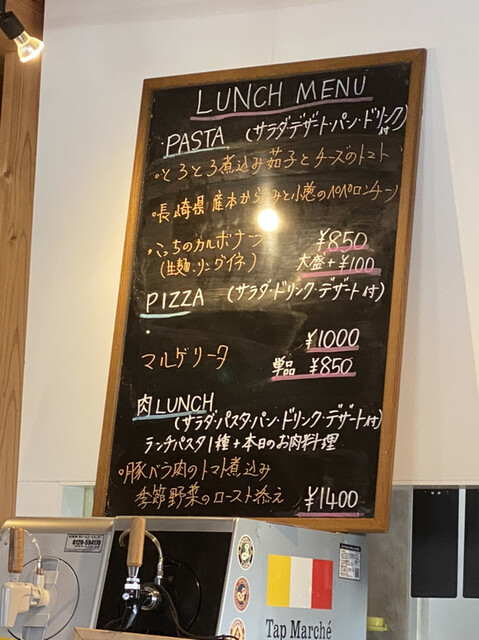 LUNCH MENU
・PASTA (サラダ・デザート・パン・ドリンク付)
・とろとろ煮込み茄子とチーズのトマト
・長崎県産本からすみと小葱のペペロンチーノ
・こっちのカルボナーラ ¥850
(生麺・リングイネ) 大盛+¥100
PIZZA (サラダ・ドリンク・デザート付)
・
¥1000
マルゲリータ 単品 ¥850
肉LUNCH
(サラダ・パスタ・パン・ドリンク・デザート付)
ランチパスタ1種+本日のお肉料理
・豚バラ肉のトマト煮込み
季節野菜のロースト添え ¥1400
Tap Marché